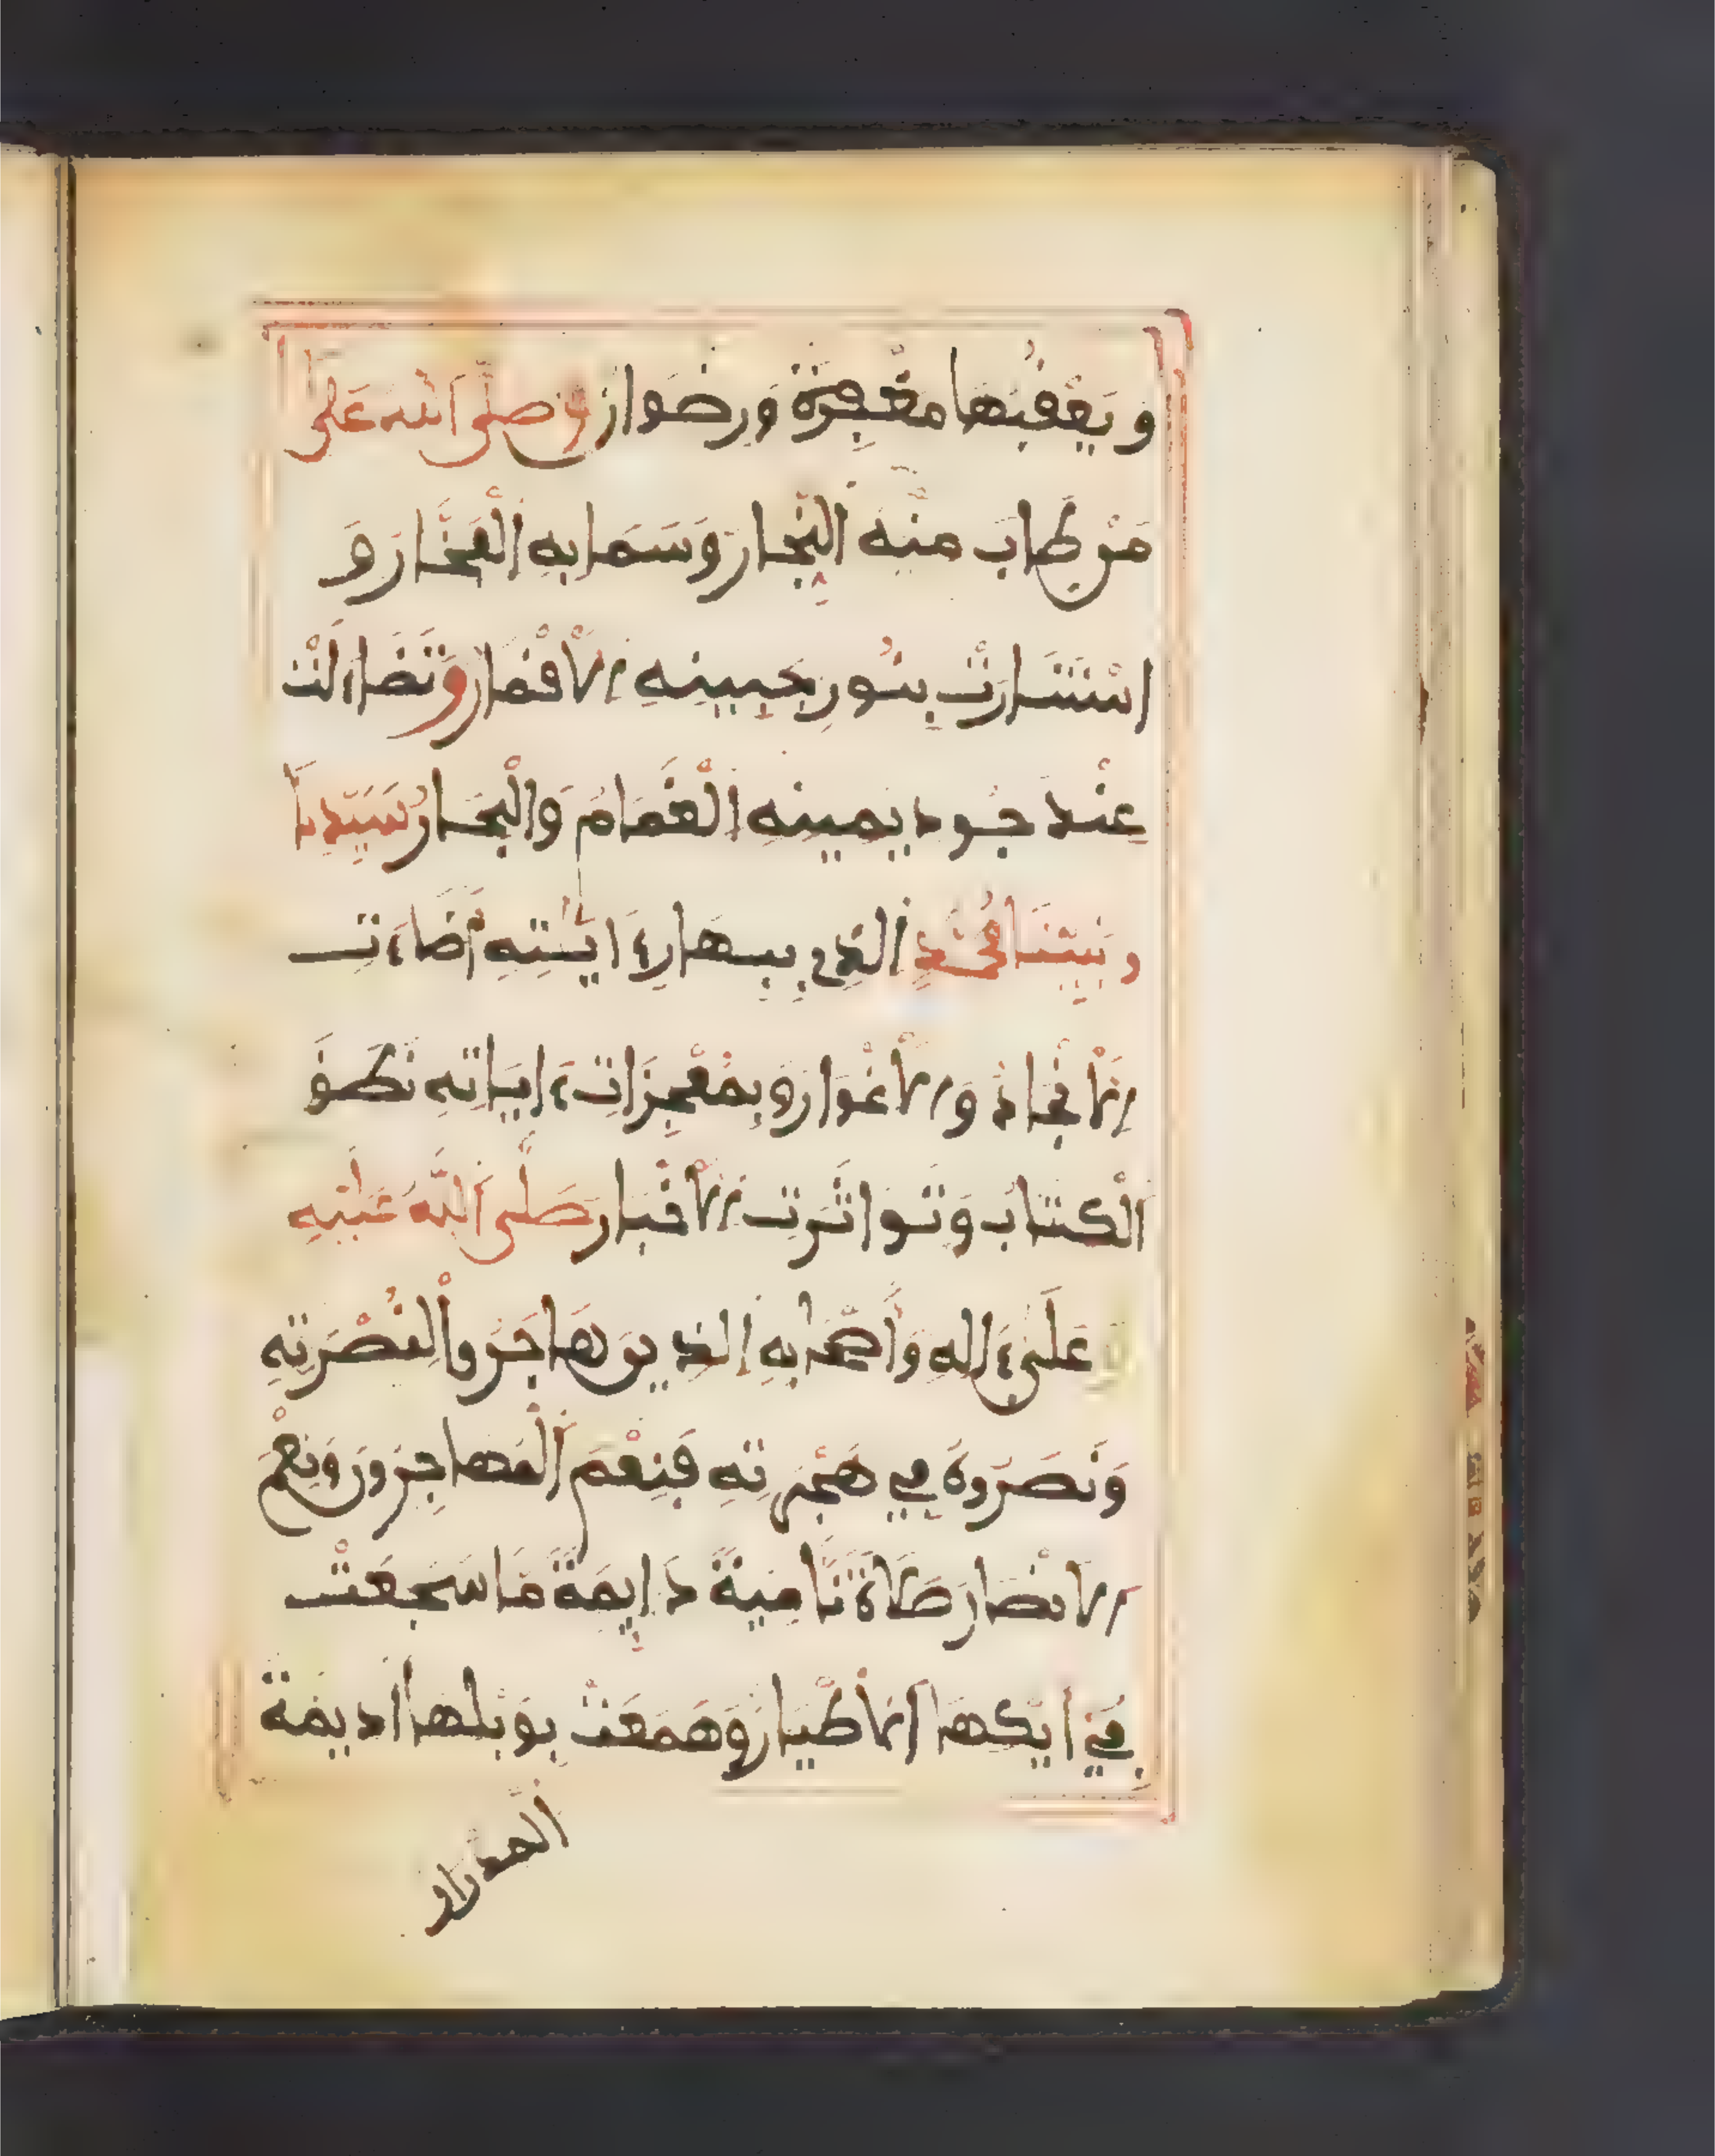 وَيَعْقُبُهَا مَغْفِرَةٌ وَرِضْوَانٌ وَصَلَّى اللَّهُ عَلَى
مَنْ طَابَ مِنْهُ النِّجَارُ وَسَمَا بِهِ الْفَخَارُ وَ
اسْتَنَارَتْ بِنُورِ جَبِينِهِ الْأَقْمَارُ وَتَضَاءَلَتْ
عِنْدَ جُودِ يَمِينِهِ الْغَمَامُ وَالْبِحَارُ سَيِّدِنَا
وَنَبِيِّنَا مُحَمَّدٍ الَّذِي بِبَاهِرِ ءَايَاتِهِ أَضَاءَتِ
الْأَنْجَادُ وَالْأَغْوَارُ وَبِمُعْجِزَاتِ ءَايَاتِهِ نَطَقَ
الْكِتَابُ وَتَوَاتَرَتِ الْأَخْبَارُ صَلَّى اللَّهُ عَلَيْهِ
وَعَلَى ءَالِهِ وَأَصْحَابِهِ الَّذِينَ هَاجَرُوا لِنُصْرَتِهِ
وَنَصَرُوهُ فِي هِجْرَتِهِ فَنِعْمَ الْمُهَاجِرُونَ وَنِعْمَ
الْأَنْصَارُ صَلَاةً نَامِيَةً دَايِمَةً مَا سَجَعَتْ
فِي أَيْكِهَا الْأَطْيَارُ وَهَمَعَتْ بِوَبْلِهَا الدِّيمَةُ
الْمِدْرَارُ